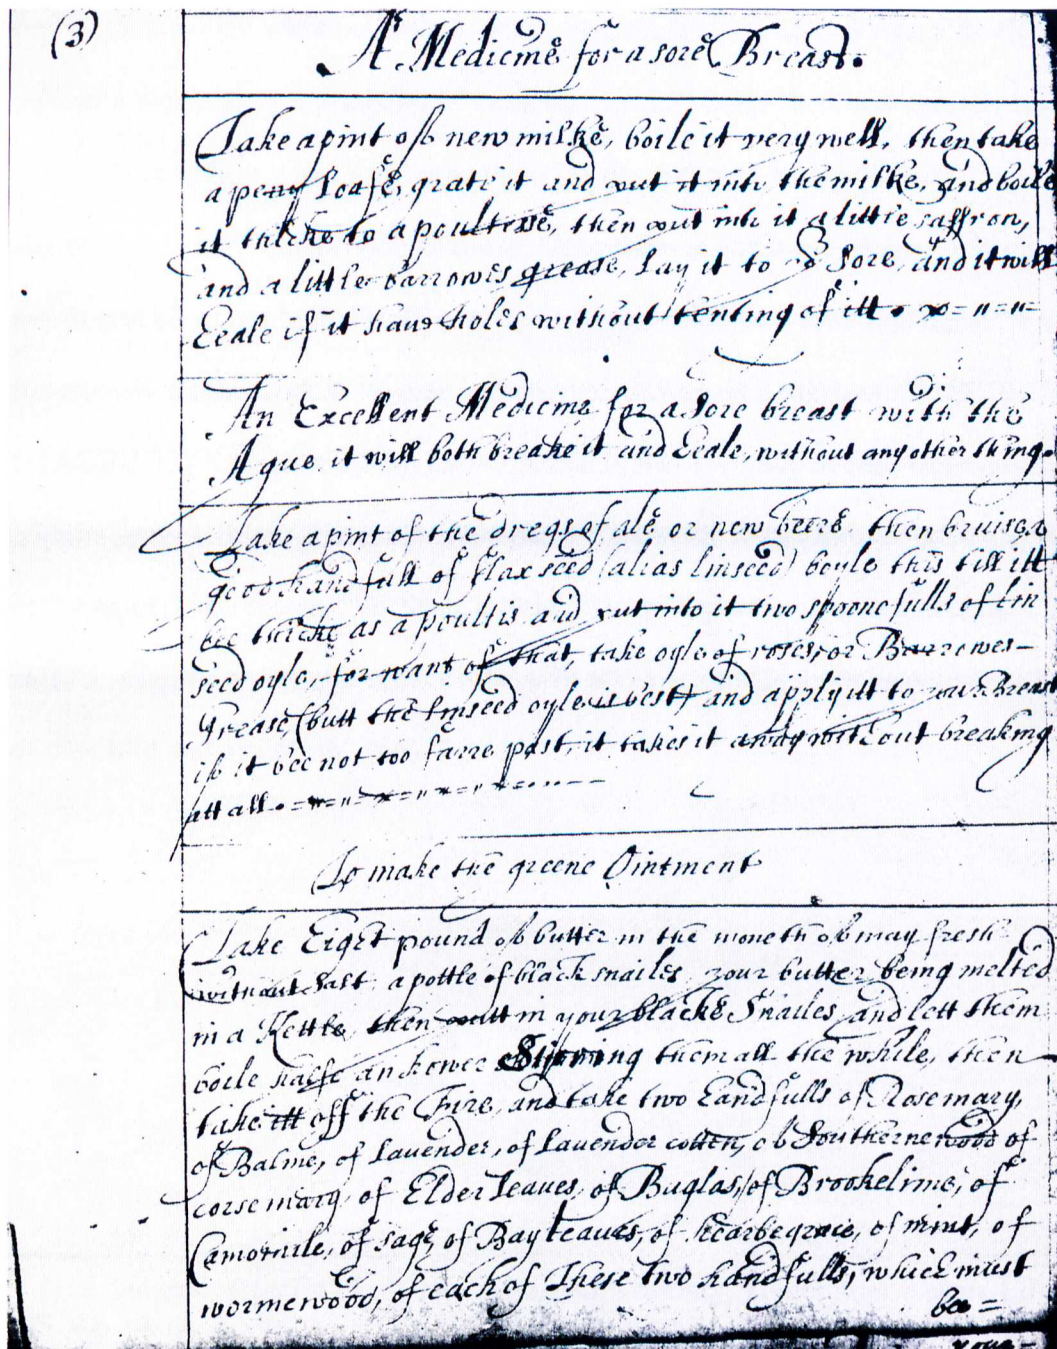 (3)
A Medicine for a sore Breast.
Take a pint of new milke, boile it very well, then take
a peny loafe, grate it and put it into the milke, and boile
it thicke to a poultisse, then put into it a little saffron,
and a little barrowes grease, lay it to ye sore, and it will
heale if it haue holes without tenting of itt.
An Excellent Medicine for a sore breast with the
Ague, it will both breake it and heale, without any other thing.
Take a pint of the dregs of ale or new beere, then bruise a
good handfull of flax seed (alias linseed) boyle this till itt
bee thicke as a poultis and put into it two spoonefulls of lin
seed oyle, for want of that, take oyle of roses, or Barrowes-
Grease, (butt the linseed oyle is best) and apply itt to your Breast
if it bee not too farre past, it takes it away without breaking
att all.
To make the greene Ointment
Take Eight pound of butter in the moneth of may fresh
without salt, a pottle of black snailes, your butter being melted
in a Kettle, then putt in your blacke Snailes, and lett them
boile halfe an hower Stirring them all the while, then
take itt off the Fire, and take two handfulls of Rosemary,
of Balme, of Lavender, of Lavender cotten, of Southernewood of
corsemary, of Elder leaues, of Buglas, of Brookelime, of
Camomile, of sage, of Bay leaues, of hearbegrace, of mint, of
wormewood, of each of These two handfulls, which must
be=